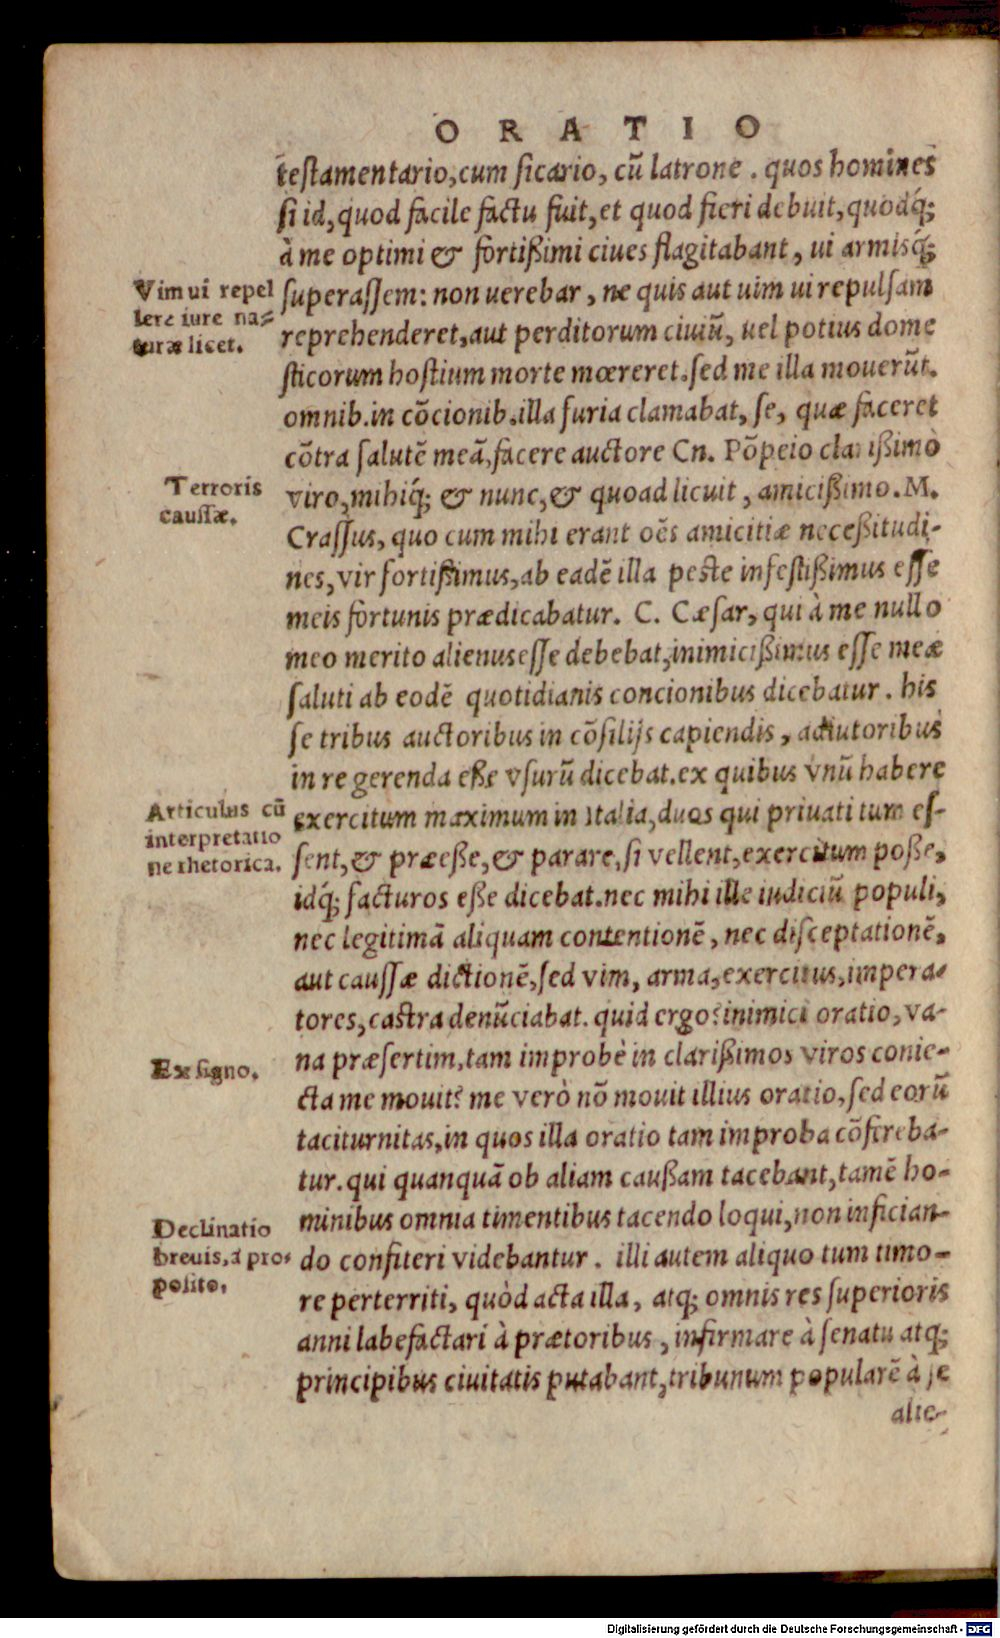 ORATIO
testamentario, cum sicario, cũ latrone. quos homines
si id, quod facile factu fuit, et quod fieri debuit, quodq́;
à me optimi & fortißimi ciues flagitabant, ui armisq́;
superassem: non uerebar, ne quis aut uim ui repulsam
reprehenderet, aut perditorum ciuiũ, uel potius dome
sticorum hostium morte mœreret. sed me illa mouerũt.
omnib. in cõcionib. illa furia clamabat, se, quæ faceret
cõtra salutẽ meã, facere auctore Cn. Põpeio clarißimo
viro, mihiq́; & nunc, & quoad licuit, amicißimo. M.
Crassus, quo cum mihi erant oẽs amicitiæ neceßitudi-
nes, vir fortissimus, ab eadẽ illa peste infestißimus esse
meis fortunis prædicabatur. C. Cæsar, qui à me nullo
meo merito alienus esse debebat, inimicißimus esse meæ
saluti ab eodẽ quotidianis concionibus dicebatur. his
se tribus auctoribus in cõsilijs capiendis, adiutoribus
in re gerenda eße vsurũ dicebat. ex quibus vnũ habere
exercitum maximum in Italia, duos qui priuati tum es-
sent, & præeße, & parare, si vellent, exercitum poße,
idq́; facturos eße dicebat. nec mihi ille iudiciũ populi,
nec legitimã aliquam contentionẽ, nec disceptationẽ,
aut caussæ dictionẽ, sed vim, arma, exercitus, impera-
tores, castra denũciabat. quid ergo? inimici oratio, va-
na præsertim, tam improbè in clarißimos viros conie-
cta me mouit? me verò nõ mouit illius oratio, sed eorũ
taciturnitas, in quos illa oratio tam improba cõfereba-
tur. qui quanquã ob aliam caußam tacebant, tamẽ ho-
minibus omnia timentibus tacendo loqui, non infician-
do confiteri videbantur. illi autem aliquo tum timo-
re perterriti, quòd acta illa, atq; omnis res superioris
anni labefactari à prætoribus, infirmare à senatu atq;
principibus ciuitatis putabant, tribunum popularẽ à se
alie-
Vim ui repel
lere iure na-
turæ licet.
Terroris
caussæ.
Articulus cũ
interpretatio
ne rhetorica.
Ex signo.
Declinatio
breuis, à pro-
posito.
Digitalisierung gefördert durch die Deutsche Forschungsgemeinschaft - DFG